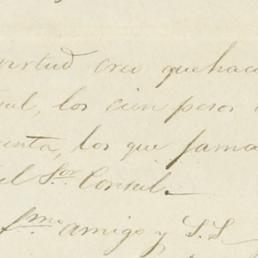 virtud creo que hac
sul, los cien pesos
enta, los que jama
el Sor. Consul.
amigo y S.S.